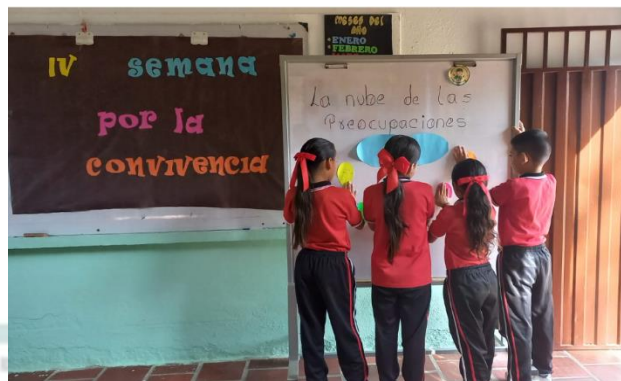 IV semana
por la
convivencia
MESES DEL
AÑO
•ENERO
•FEBRERO
La nube de las
Preocupaciones